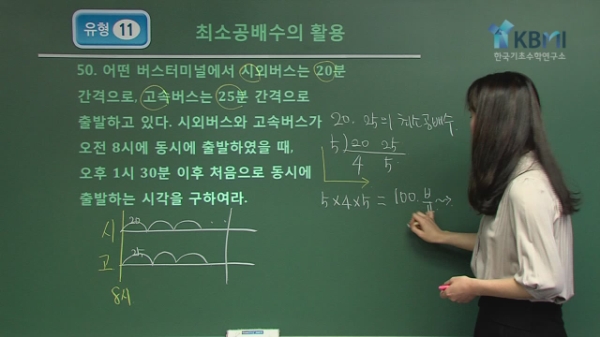 유형 11
최소공배수의 활용
KBMI
한국기초수학연구소
50. 어떤 버스터미널에서 시외버스는 20분
간격으로, 고속버스는 25분 간격으로
출발하고 있다. 시외버스와 고속버스가
오전 8시에 동시에 출발하였을 때,
오후 1시 30분 이후 처음으로 동시에
출발하는 시각을 구하여라.
20. 25의 최소공배수.
5) 20 25
4 5
5×4×5 = 100.분
시 20
고 25
8시